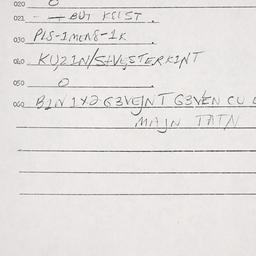 020 0
021 - BUT KEIST.
030 PLS-1MEN8-1K
040 KUZIN/SILVESTERKINT
050 0
060 B2N 1X2 G3VEJNT G3VEN CU
MAJN TATN